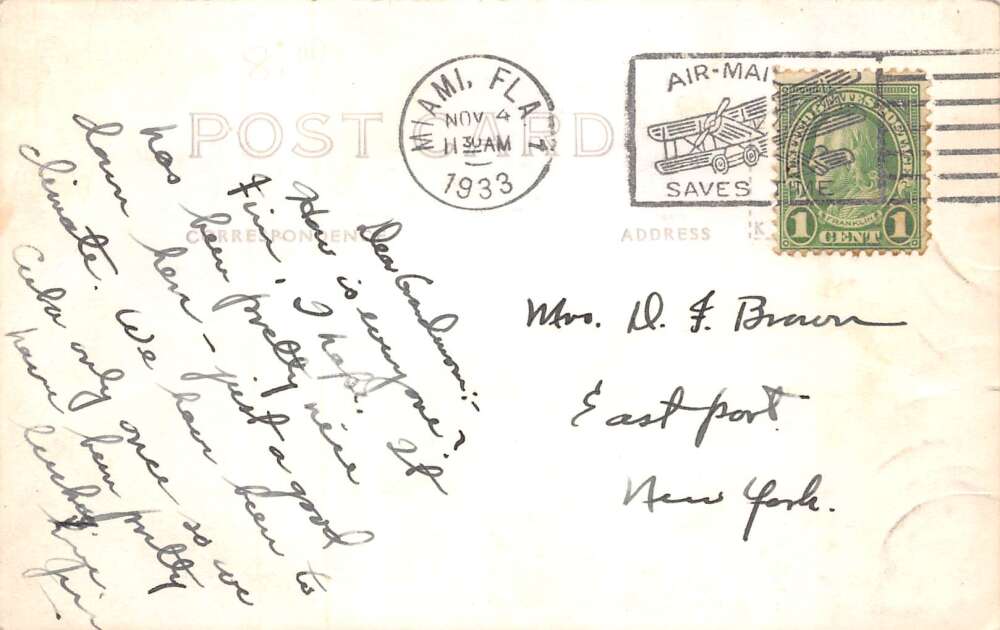 POST CARD
CORRESPONDENCE
ADDRESS
MIAMI, FLA. 1
NOV 4
11 30 AM
1933
AIR-MAIL
SAVES TIME
UNITED STATES POSTAGE
FRANKLIN
1 CENT 1
Dear Grandmom:-
How is everyone?
Fine, I hope. It
has been pretty nice
down here - just a good
climate. We have been to
Cuba only once so we
have been pretty
lucky.
Mrs. D. F. Brown
East port
New York.